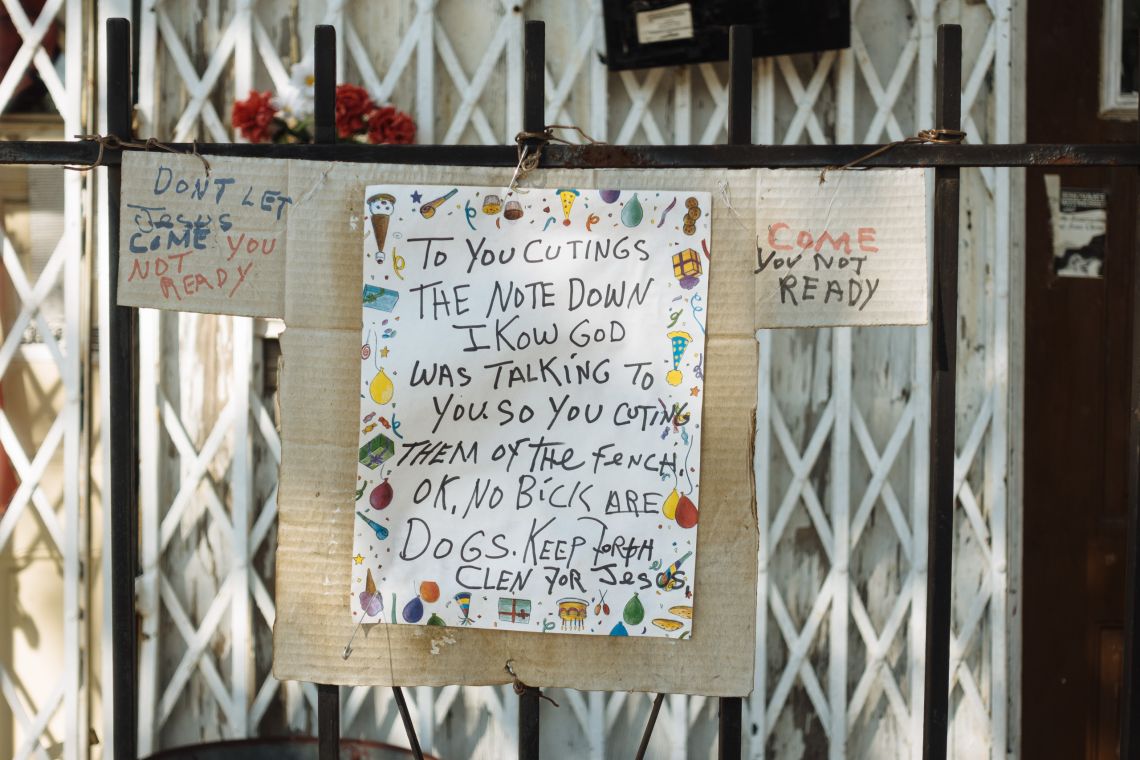 DONT LET
Jesus
COME YOU
NOT
READY
TO YOU CUTINGS
THE NOTE DOWN
I KOW GOD
WAS TALKING TO
YOU. SO YOU CUTING
THEM OF THE FENCH.
OK, NO BICK ARE
DOGS. KEEP PORCH
CLEN FOR JESUS
COME
YOU NOT
READY